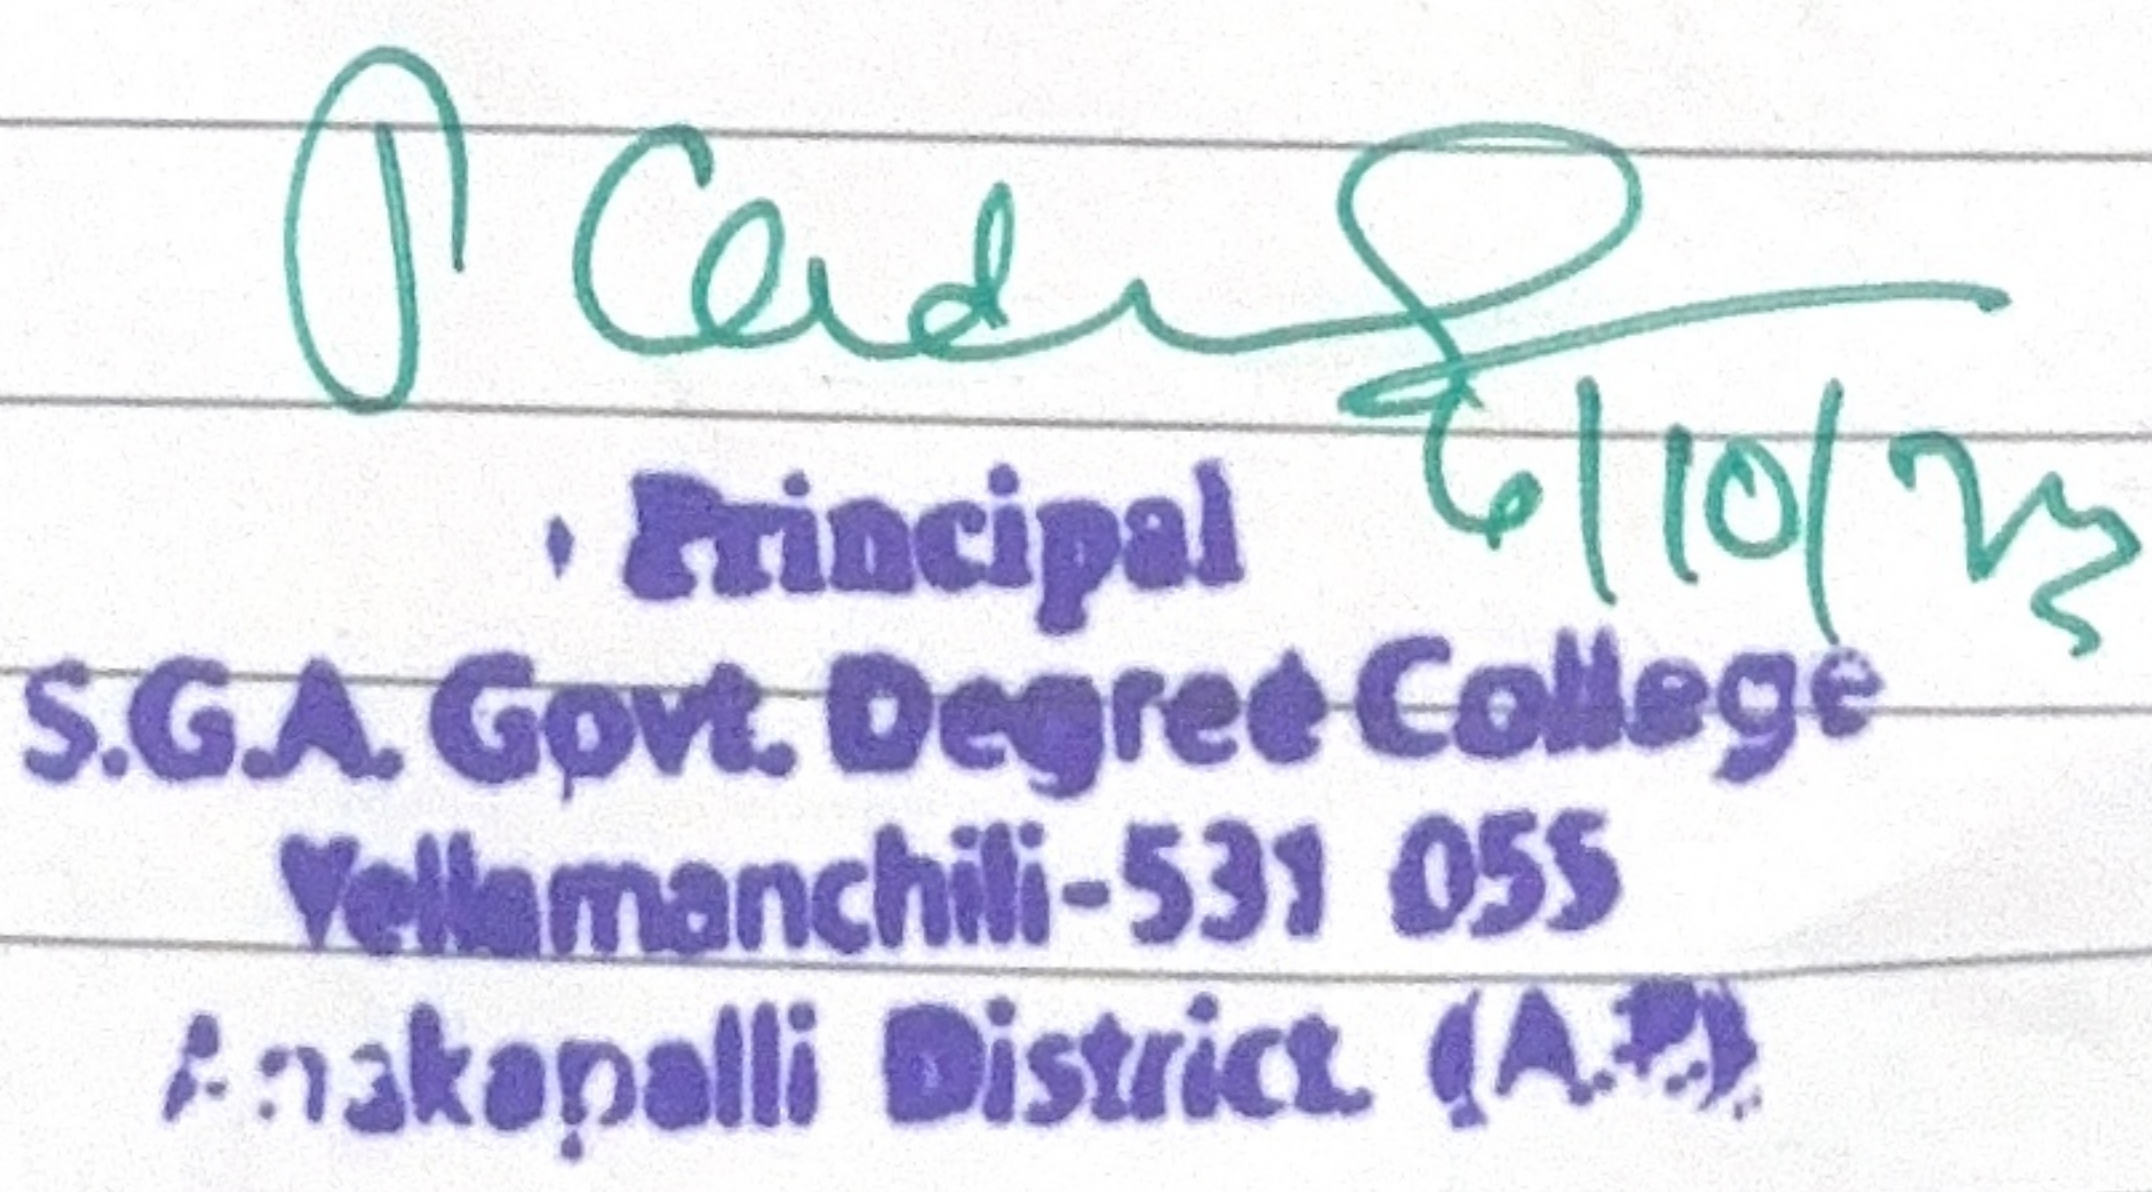 6/10/23
Principal
S.G.A. Govt. Degree College
Yellamanchili-531 055
Anakapalli District. (A.P)